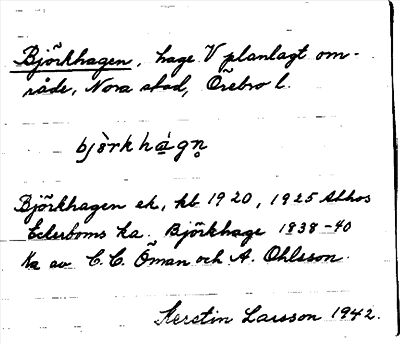 Björkhagen, hage V planlagt om-
råde, Nora stad, Örebro l.
bjè̱rkhá̱gn̥
Björkhagen ek, kb 1920, 1925 Athos
Ederboms ka. Björkhage 1838-40
Ka av C. C. Öman och A. Ohlsson.
Kerstin Larsson 1942.